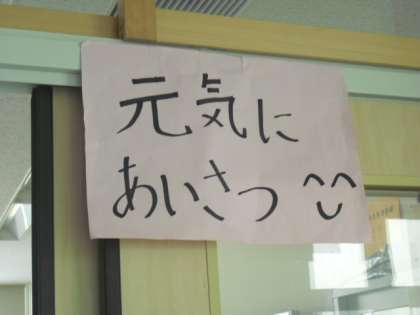 元気に
あいさつ ^^